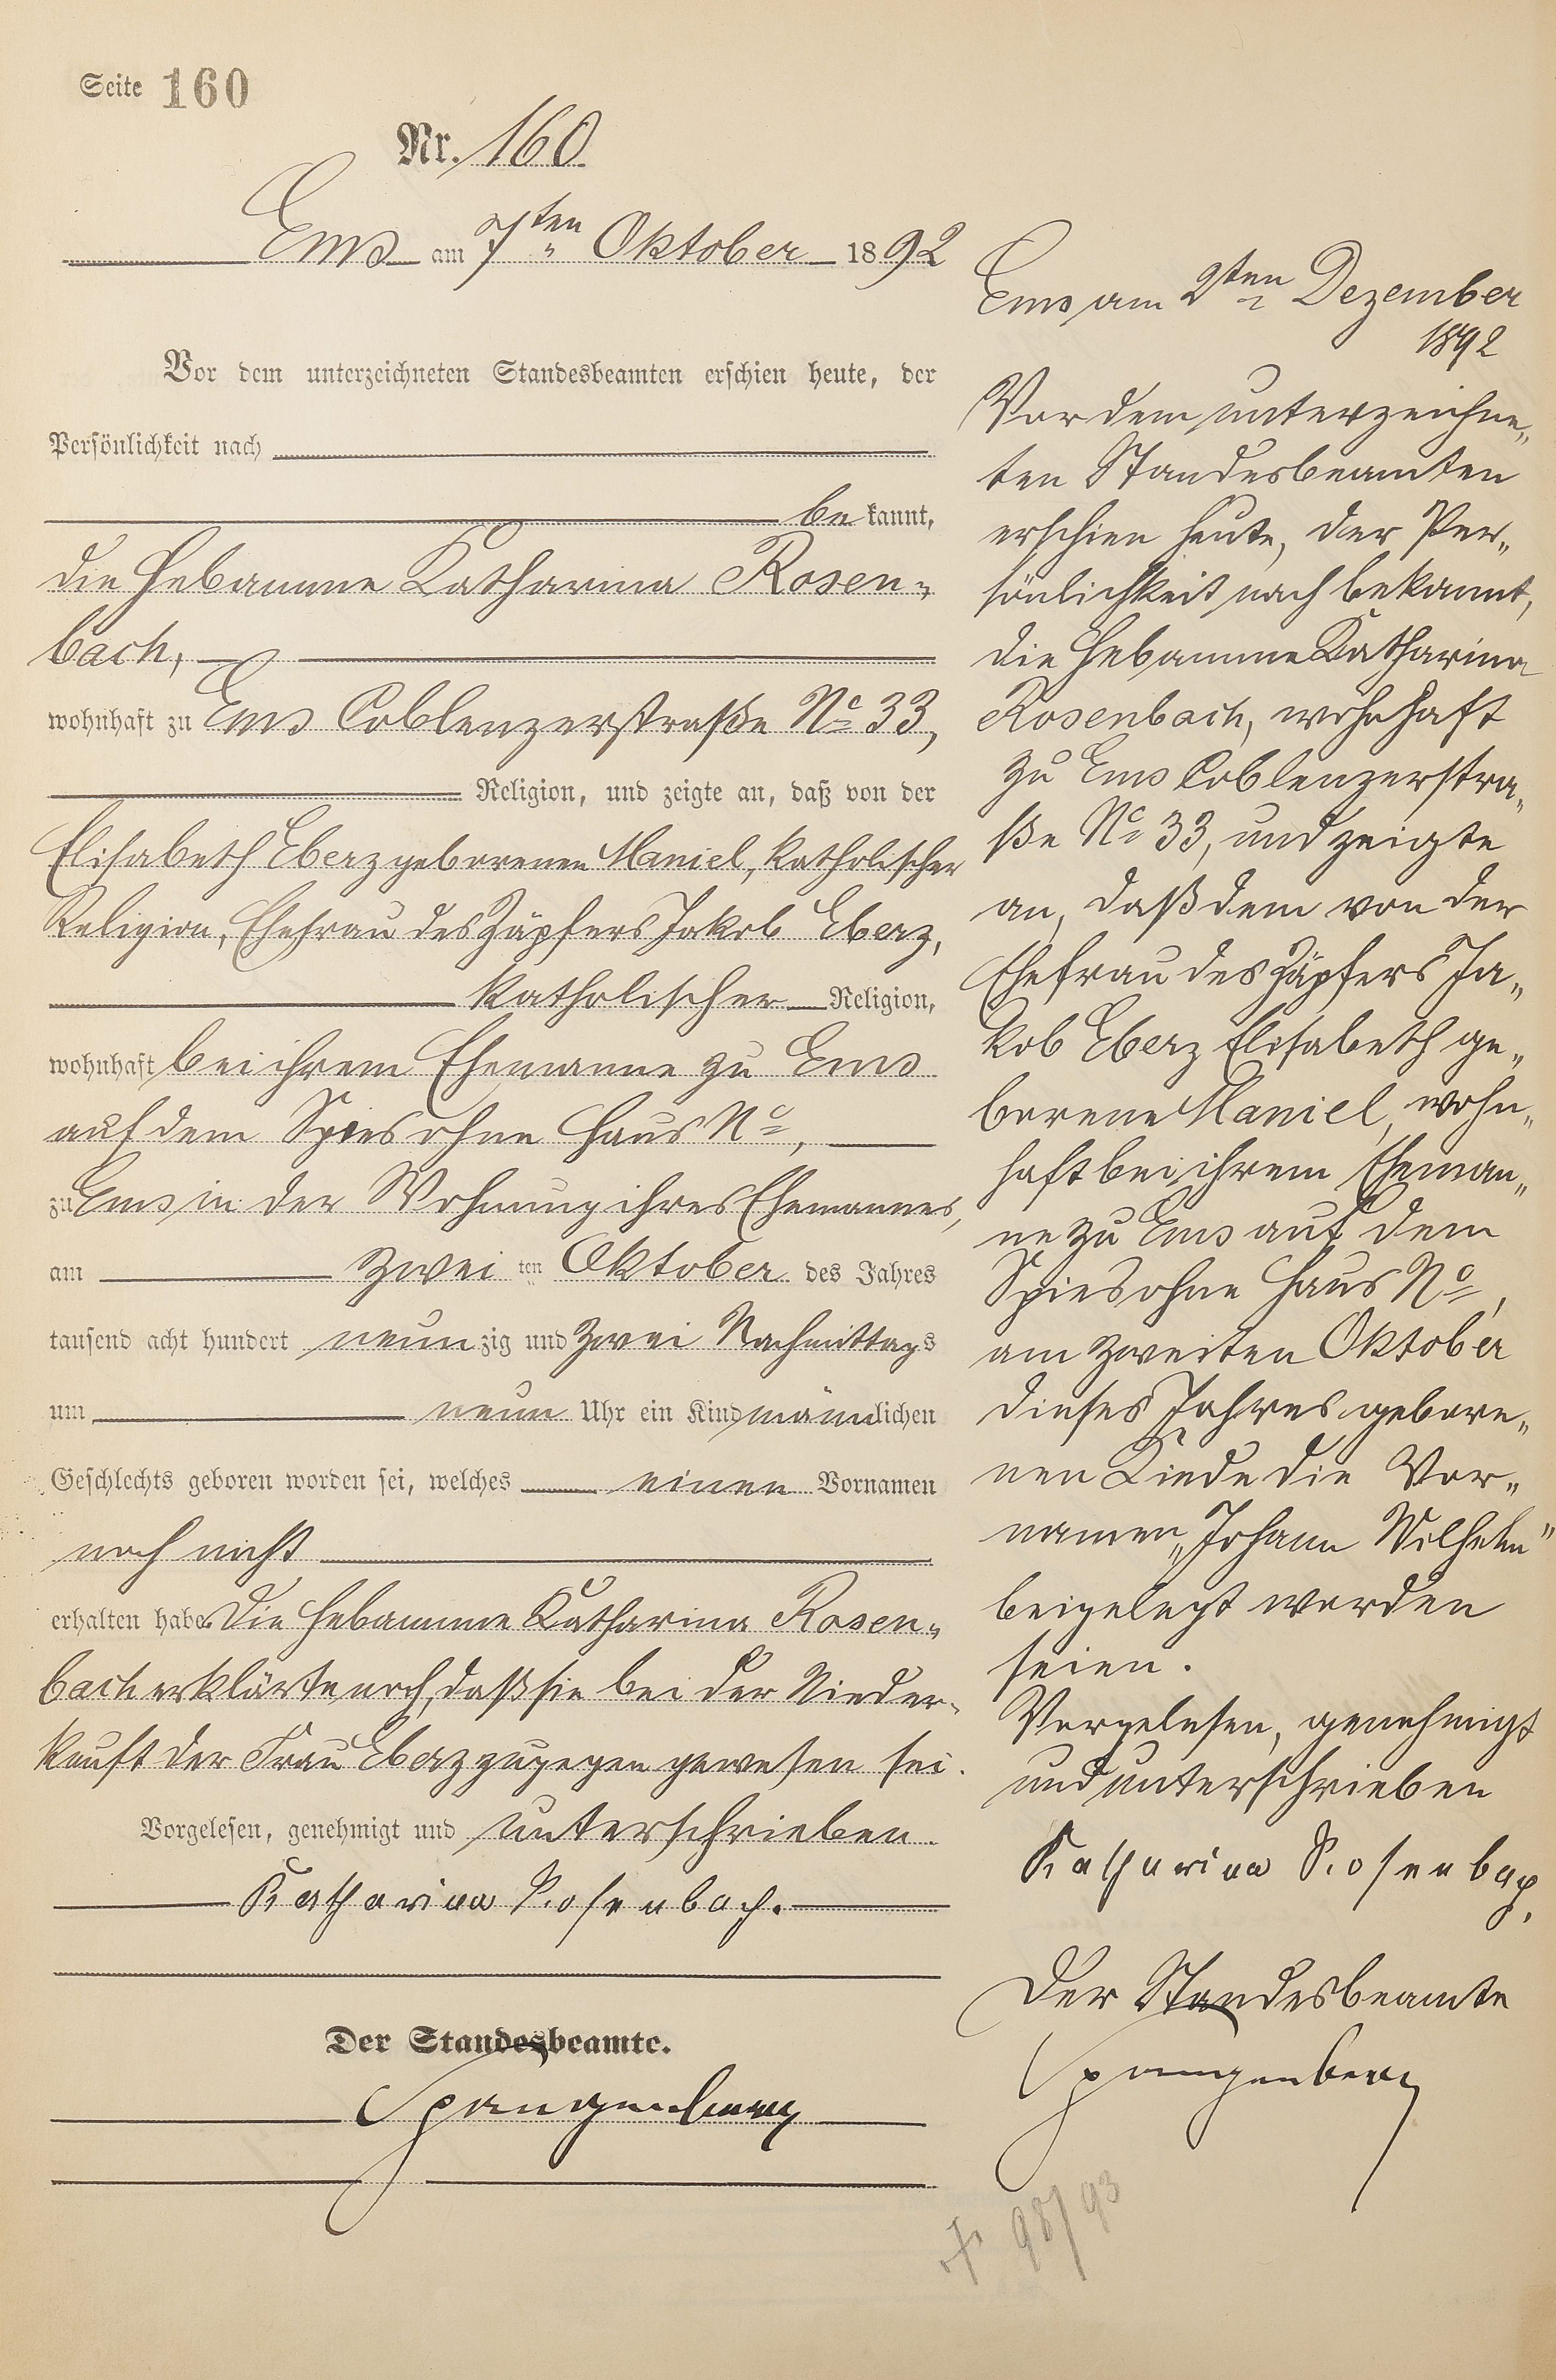 Seite 160
Nr. 160
Ems am 7ten Oktober 1892
Vor dem unterzeichneten Standesbeamten erschien heute, der
Persönlichkeit nach
be kannt,
die Hebamme Katharina Rosen-
bach,
wohnhaft zu Ems Coblenzerstraße No 33,
Religion, und zeigte an, daß von der
Elisabeth Eberz geborenen Maniel, katholischer
Religion, Ehefrau des Zäpfers Jakob Eberz,
katholischer Religion,
wohnhaft bei ihrem Ehemanne zu Ems
auf dem Spies ohne Haus No,
zu Ems in der Wohnung ihres Ehemannes,
am zwei ten Oktober des Jahres
tausend acht hundert neunzig und zwei Nachmittags
um neun Uhr ein Kind männlichen
Geschlechts geboren worden sei, welches einen Vornamen
noch nicht
erhalten habe. Die Hebamme Katharina Rosen-
bach erklärte noch, daß sie bei der Nieder-
kunft der Frau Eberz zugegen gewesen sei.
Vorgelesen, genehmigt und unterschrieben.
Katharina Rosenbach.
Der Standesbeamte.
Spangenberg
Ems am 2ten Dezember
1892
Vor dem unterzeichne-
ten Standesbeamten
erschien heute, der Per-
sönlichkeit nach bekannt,
die Hebamme Katharina
Rosenbach, wohnhaft
zu Ems Coblenzerstra-
ße No 33, und zeigte
an, daß dem von der
Ehefrau des Zäpfers Ja-
kob Eberz Elisabeth ge-
borene Maniel, wohn-
haft bei ihrem Eheman-
ne zu Ems auf dem
Spies ohne Haus No,
am zweiten Oktober
dieses Jahres gebore-
nen Kinde die Vor-
namen „Johann Wilhelm"
beigelegt worden
seien.
Vorgelesen, genehmigt
und unterschrieben
Katharina Rosenbach.
Der Standesbeamte
Spangenberg
† 98/93